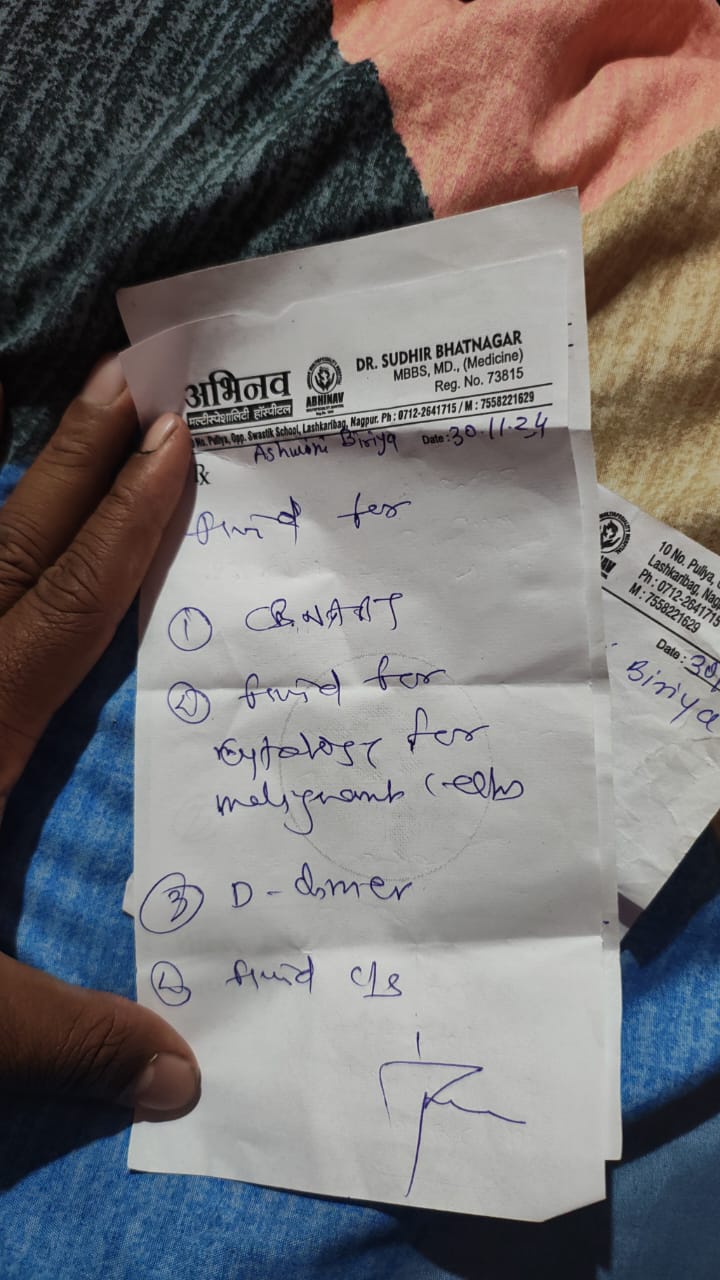 अभिनव
मल्टीस्पेशालिटी हॉस्पीटल
ABHINAV
DR. SUDHIR BHATNAGAR
MBBS, MD., (Medicine)
Reg. No. 73815
No. Puliya, Opp. Swastik School, Lashkaribag, Nagpur. Ph : 0712-2641715 / M : 7558221629
Ashwini Biriya Date : 30.11.24
Rx
fluid for
① CBNAAT
② fluid for
cytology for
malignant cells
③ D-dimer
④ fluid c/s
10 No. Puliya,
Lashkaribag, Nag
Ph : 0712-2641715
M : 7558221629
Date : 30
Biriya